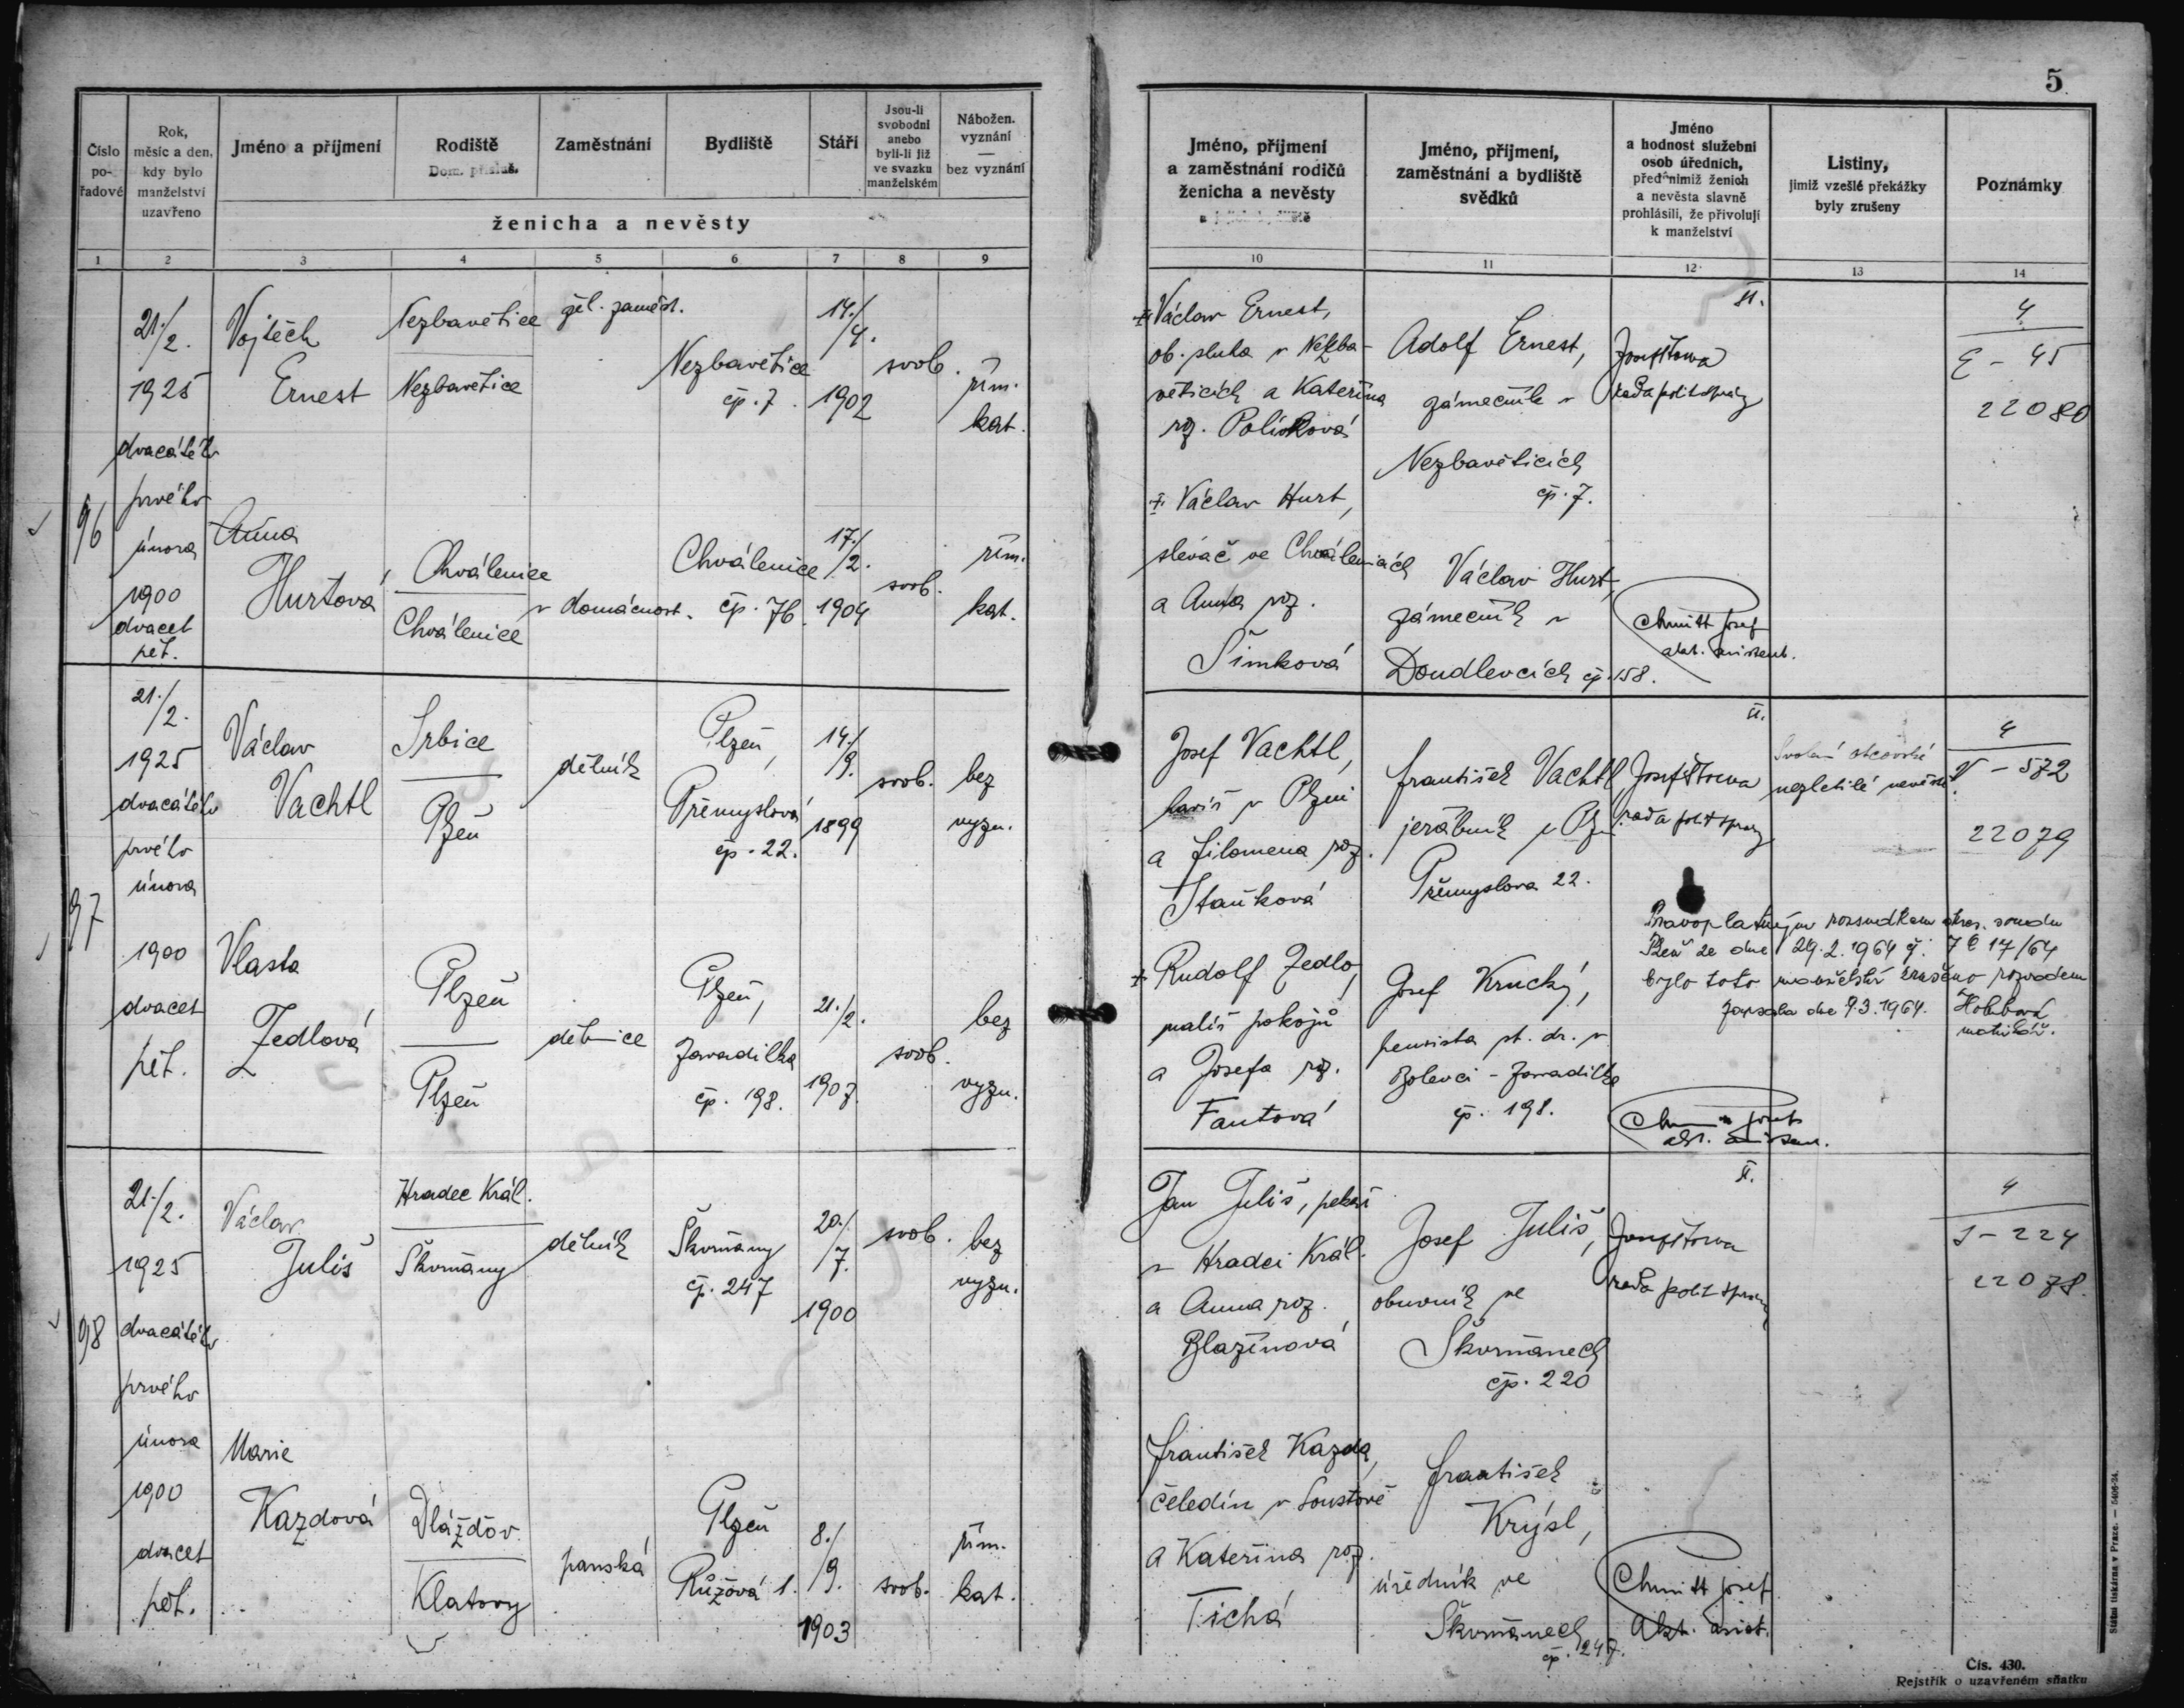 5
Číslo
po-
řadové
Rok,
měsíc a den,
kdy bylo
manželství
uzavřeno
Jméno a příjmení
Rodiště
Dom. přísluš.
Zaměstnání
Bydliště
Stáří
Jsou-li
svobodni
anebo
byli-li již
ve svazku
manželském
Nábožen.
vyznání
—
bez vyznání
ženicha a nevěsty
1 2 3 4 5 6 7 8 9
Jméno, příjmení
a zaměstnání rodičů
ženicha a nevěsty
Jméno, příjmení,
zaměstnání a bydliště
svědků
Jméno
a hodnost služební
osob úředních,
před nimiž ženich
a nevěsta slavně
prohlásili, že přivolují
k manželství
Listiny,
jimiž vzešlé překážky
byly zrušeny
Poznámky
10 11 12 13 14
96
21./2.
1925
dvacátého
prvého
února
1900
dvacet
pět.
Vojtěch
Ernest
Nezbavětice
Nezbavětice
žel. zaměst.
Nezbavětice
čp. 7.
14./4.
1902
svob.
řím.
kat.
Anna
Hurtová
Chválenice
Chválenice
v domácnost.
Chválenice
čp. 76.
17./2.
1904
svob.
řím.
kat.
Václav Ernest,
ob. sluha v Nezba-
věticích a Kateřina
roz. Polívková
Václav Hurt,
slévač ve Chválenicích
a Anna roz.
Šimková
Adolf Ernest,
zámečník v
Nezbavěticích
čp. 7.
Václav Hurt,
zámečník v
Doudlevcích čp. 158.
II.
rada polit správy
Chmitt Josef
akt. asistent.
4
E - 45
22080
97
21./2.
1925
dvacátého
prvého
února
1900
dvacet
pět.
Václav
Vachtl
Srbice
Plzeň
dělník
Plzeň,
Přemyslova
čp. 22.
14./9.
1899
svob.
bez
vyzn.
Vlasta
Zedlová
Plzeň
Plzeň
dělnice
Plzeň,
Zavadilka
čp. 198.
21./2.
1907
svob.
bez
vyzn.
Josef Vachtl,
v Plzni
a Filomena roz.
Staňková
Rudolf Zedlo,
malíř pokojů
a Josefa roz.
Fantová
František Vachtl,
jeřábník v Plz
Přemyslova 22.
Josef Krucký,
pensista st. dr. v
Bolevci - Zavadilka
čp. 198.
II.
rada polit správy
Svolení otcovské
nezletilé nevěstě.
4
V - 572
22079
Pravoplatným rozsudkem okres. soudu
Plzeň ze dne 29.2.1964 č. 7 C 17/64
bylo toto manželství zrušeno rozvodem
Zapsáno dne 9.3.1964. Holubová
matrikář.
98
21./2.
1925
dvacátého
prvého
února
1900
dvacet
pět.
Václav
Juliš
Hradec Král.
Škvrňany
dělník
Škvrňany
čp. 247
20./7.
1900
svob.
bez
vyzn.
Marie
Kazdová
Dlážďov
Klatovy
panská
Plzeň
Růžová 1.
8./9.
1903
svob.
řím.
kat.
Jan Juliš, pekař
v Hradci Král.
a Anna roz.
Blažínová
František Kazda,
čeledín v Soustově
a Kateřina roz.
Tichá
Josef Juliš,
obuvník ve
Škvrňanech
čp. 220
František
Krýsl,
úředník ve
Škvrňanech
čp. 247.
II.
rada polit správy
Chmitt Josef
Akt. asist.
4
J - 224
22078.
Státní tiskárna v Praze. — 5406-24.
Čís. 430.
Rejstřík o uzavřeném sňatku